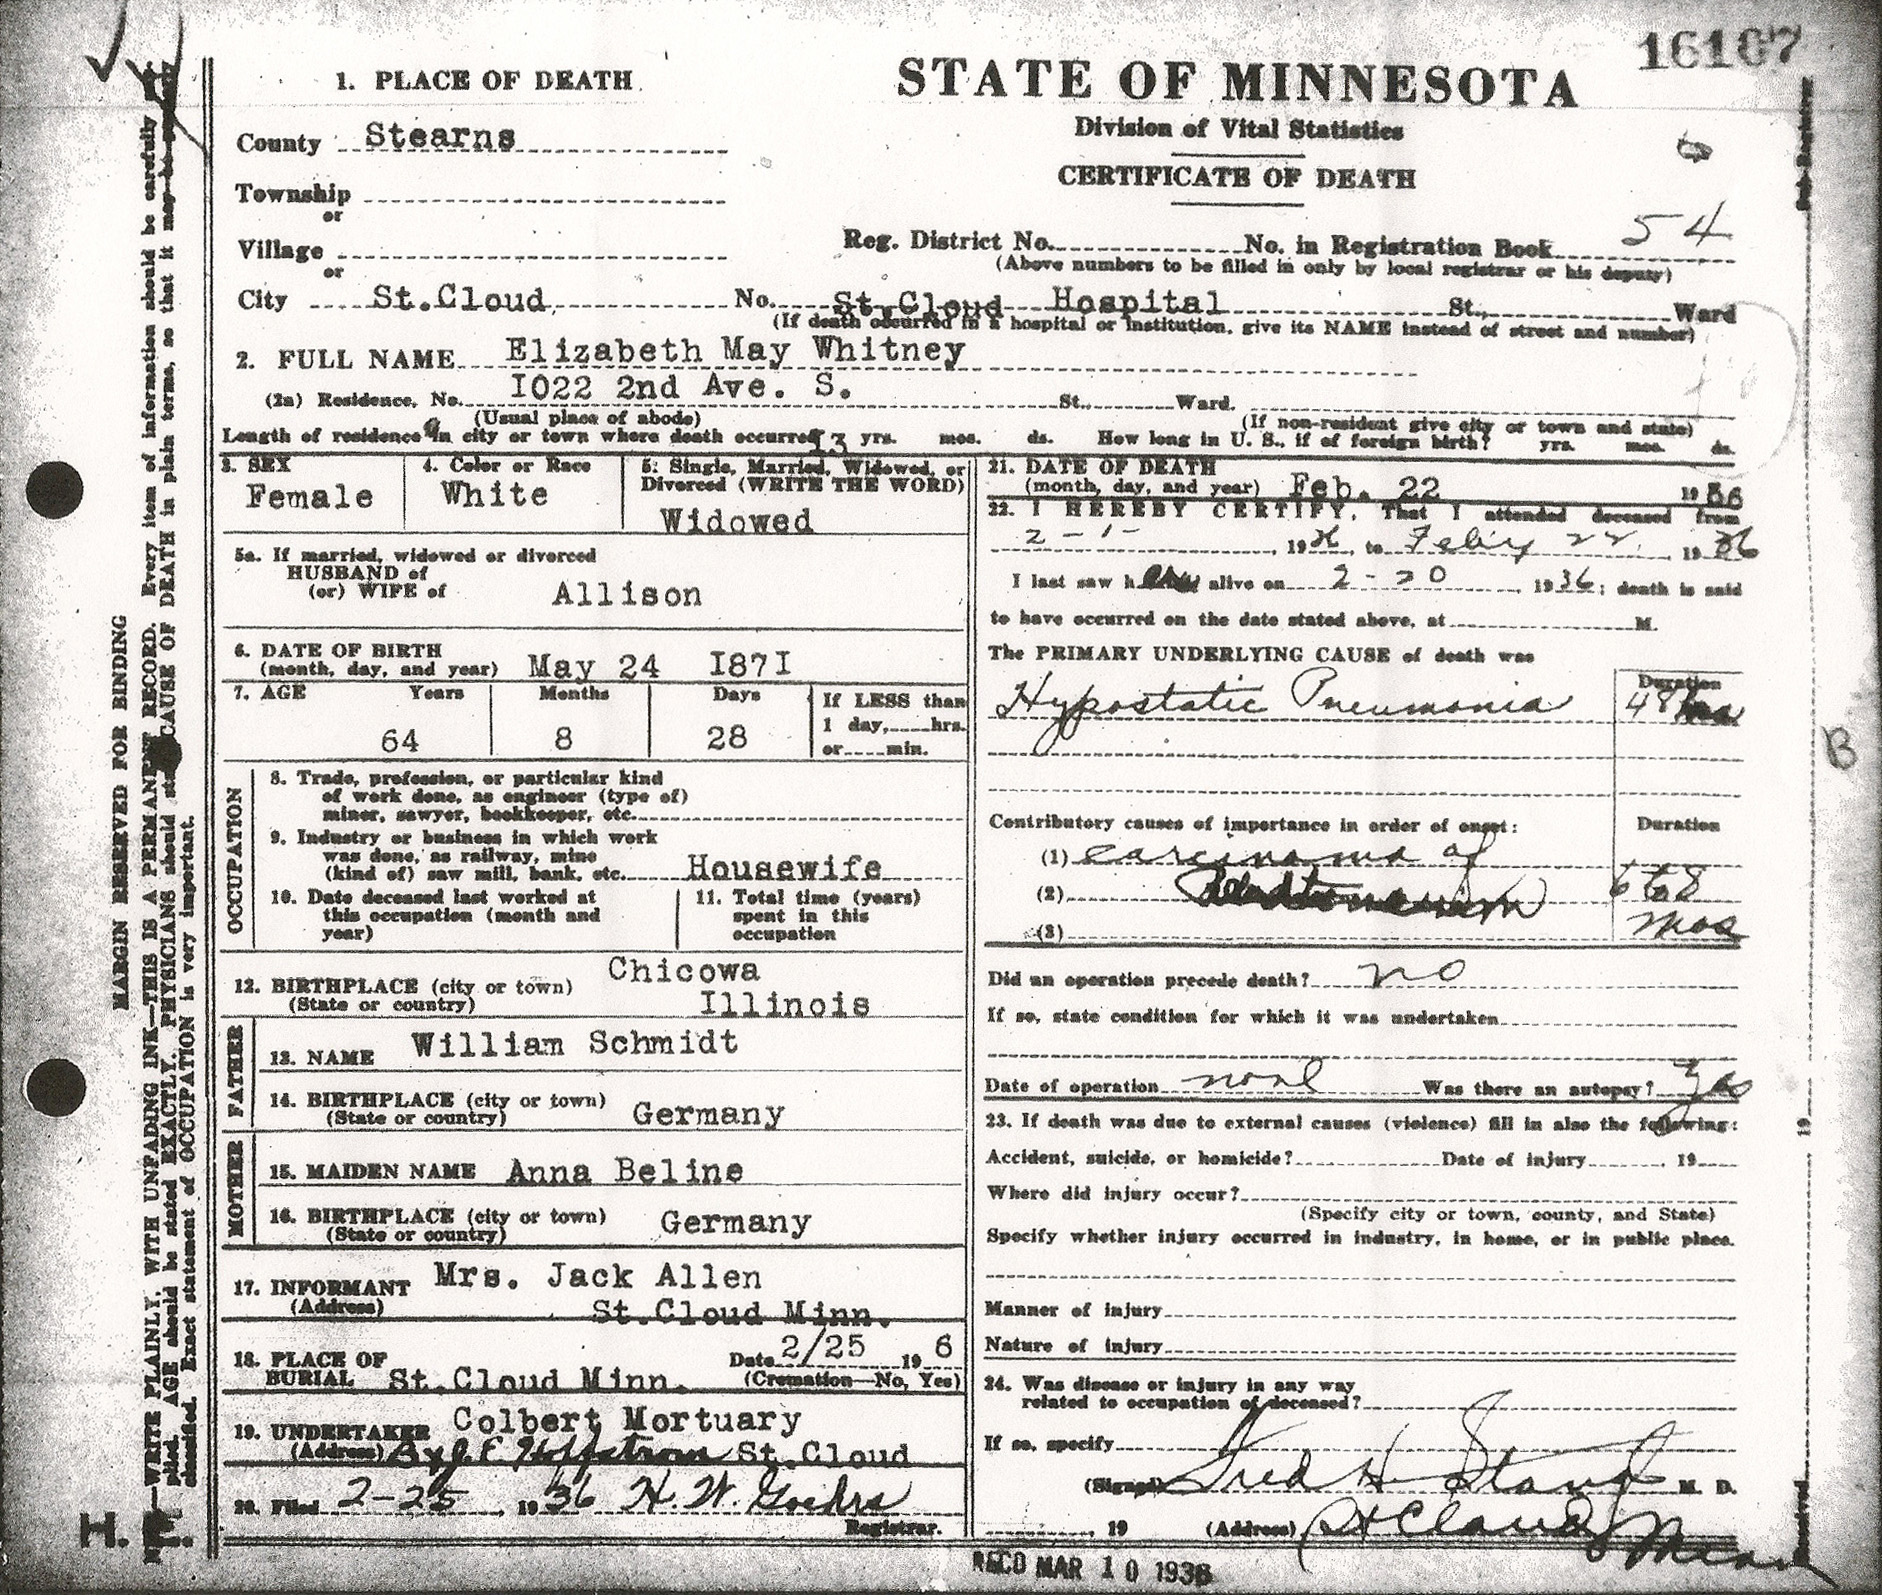 16167
1. PLACE OF DEATH
STATE OF MINNESOTA
Division of Vital Statistics
CERTIFICATE OF DEATH
County Stearns
Township
or
Village
or
Reg. District No. No. in Registration Book 54
(Above numbers to be filled in only by local registrar or his deputy)
City St.Cloud No. St.Cloud Hospital St., Ward
(If death occurred in a hospital or institution, give its NAME instead of street and number)
2. FULL NAME Elizabeth May Whitney
(2a) Residence, No. I022 2nd Ave. S. St., Ward.
(Usual place of abode) (If non-resident give city or town and state)
Length of residence in city or town where death occurred 13 yrs. mos. ds. How long in U. S., if of foreign birth? yrs. mos. ds.
3. SEX
Female
4. Color or Race
White
5. Single, Married, Widowed, or
Divorced (WRITE THE WORD)
Widowed
5a. If married, widowed or divorced
HUSBAND of
(or) WIFE of Allison
6. DATE OF BIRTH
(month, day, and year) May 24 I87I
7. AGE Years Months Days
64 8 28
If LESS than
1 day,....hrs.
or....min.
OCCUPATION
8. Trade, profession, or particular kind
of work done, as engineer (type of)
miner, sawyer, bookkeeper, etc.
9. Industry or business in which work
was done, as railway, mine
(kind of) saw mill, bank, etc. Housewife
10. Date deceased last worked at
this occupation (month and
year)
11. Total time (years)
spent in this
occupation
12. BIRTHPLACE (city or town) Chicowa
(State or country) Illinois
FATHER
13. NAME William Schmidt
14. BIRTHPLACE (city or town)
(State or country) Germany
MOTHER
15. MAIDEN NAME Anna Beline
16. BIRTHPLACE (city or town) Germany
(State or country)
17. INFORMANT Mrs. Jack Allen
(Address) St.Cloud Minn.
18. PLACE OF Date 2/25 19 6
BURIAL St.Cloud Minn. (Cremation—No, Yes)
19. UNDERTAKER Colbert Mortuary
(Address) By J. E. St.Cloud
20. Filed 2-25, 1936 H. W. Goehrs
Registrar.
21. DATE OF DEATH
(month, day, and year) Feb. 22 1936
22. I HEREBY CERTIFY, That I attended deceased from
2-1- , 1936, to Feb'y 22, 1936
I last saw her alive on 2-20, 1936; death is said
to have occurred on the date stated above, at M.
The PRIMARY UNDERLYING CAUSE of death was
Duration
Hypostatic Pneumonia 48 hrs
Contributory causes of importance in order of onset: Duration
(1) carcinoma of
(2) 6 to 8
(3) mos
Did an operation precede death? no
If so, state condition for which it was undertaken
Date of operation none Was there an autopsy? Yes
23. If death was due to external causes (violence) fill in also the following:
Accident, suicide, or homicide? Date of injury , 19
Where did injury occur?
(Specify city or town, county, and State)
Specify whether injury occurred in industry, in home, or in public place.
Manner of injury
Nature of injury
24. Was disease or injury in any way
related to occupation of deceased?
If so, specify
(Signed) Fred H Stangl M. D.
, 19 (Address) St Cloud, Minn
REC'D MAR 10 1936
MARGIN RESERVED FOR BINDING
WRITE PLAINLY, WITH UNFADING INK—THIS IS A PERMANENT RECORD. Every item of information should be carefully
plied. AGE should be stated EXACTLY. PHYSICIANS should state CAUSE OF DEATH in plain terms, so that it may be
classified. Exact statement of OCCUPATION is very important.
H.
B
19